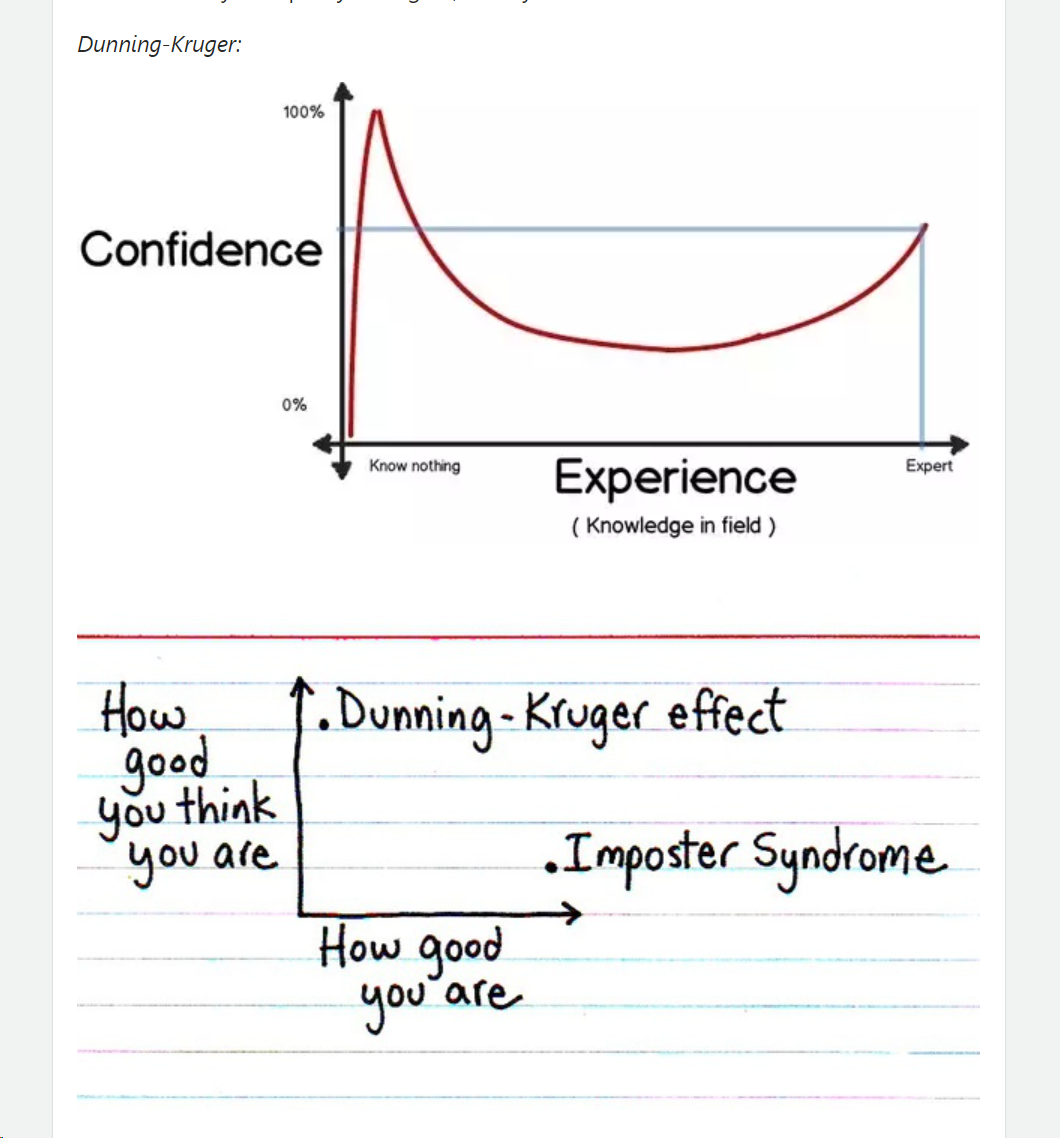 Dunning-Kruger:
100%
Confidence
0%
Know nothing
Experience
Expert
( Knowledge in field )
How
good
you think
you are
.Dunning-Kruger effect
.Imposter Syndrome
How good
you are